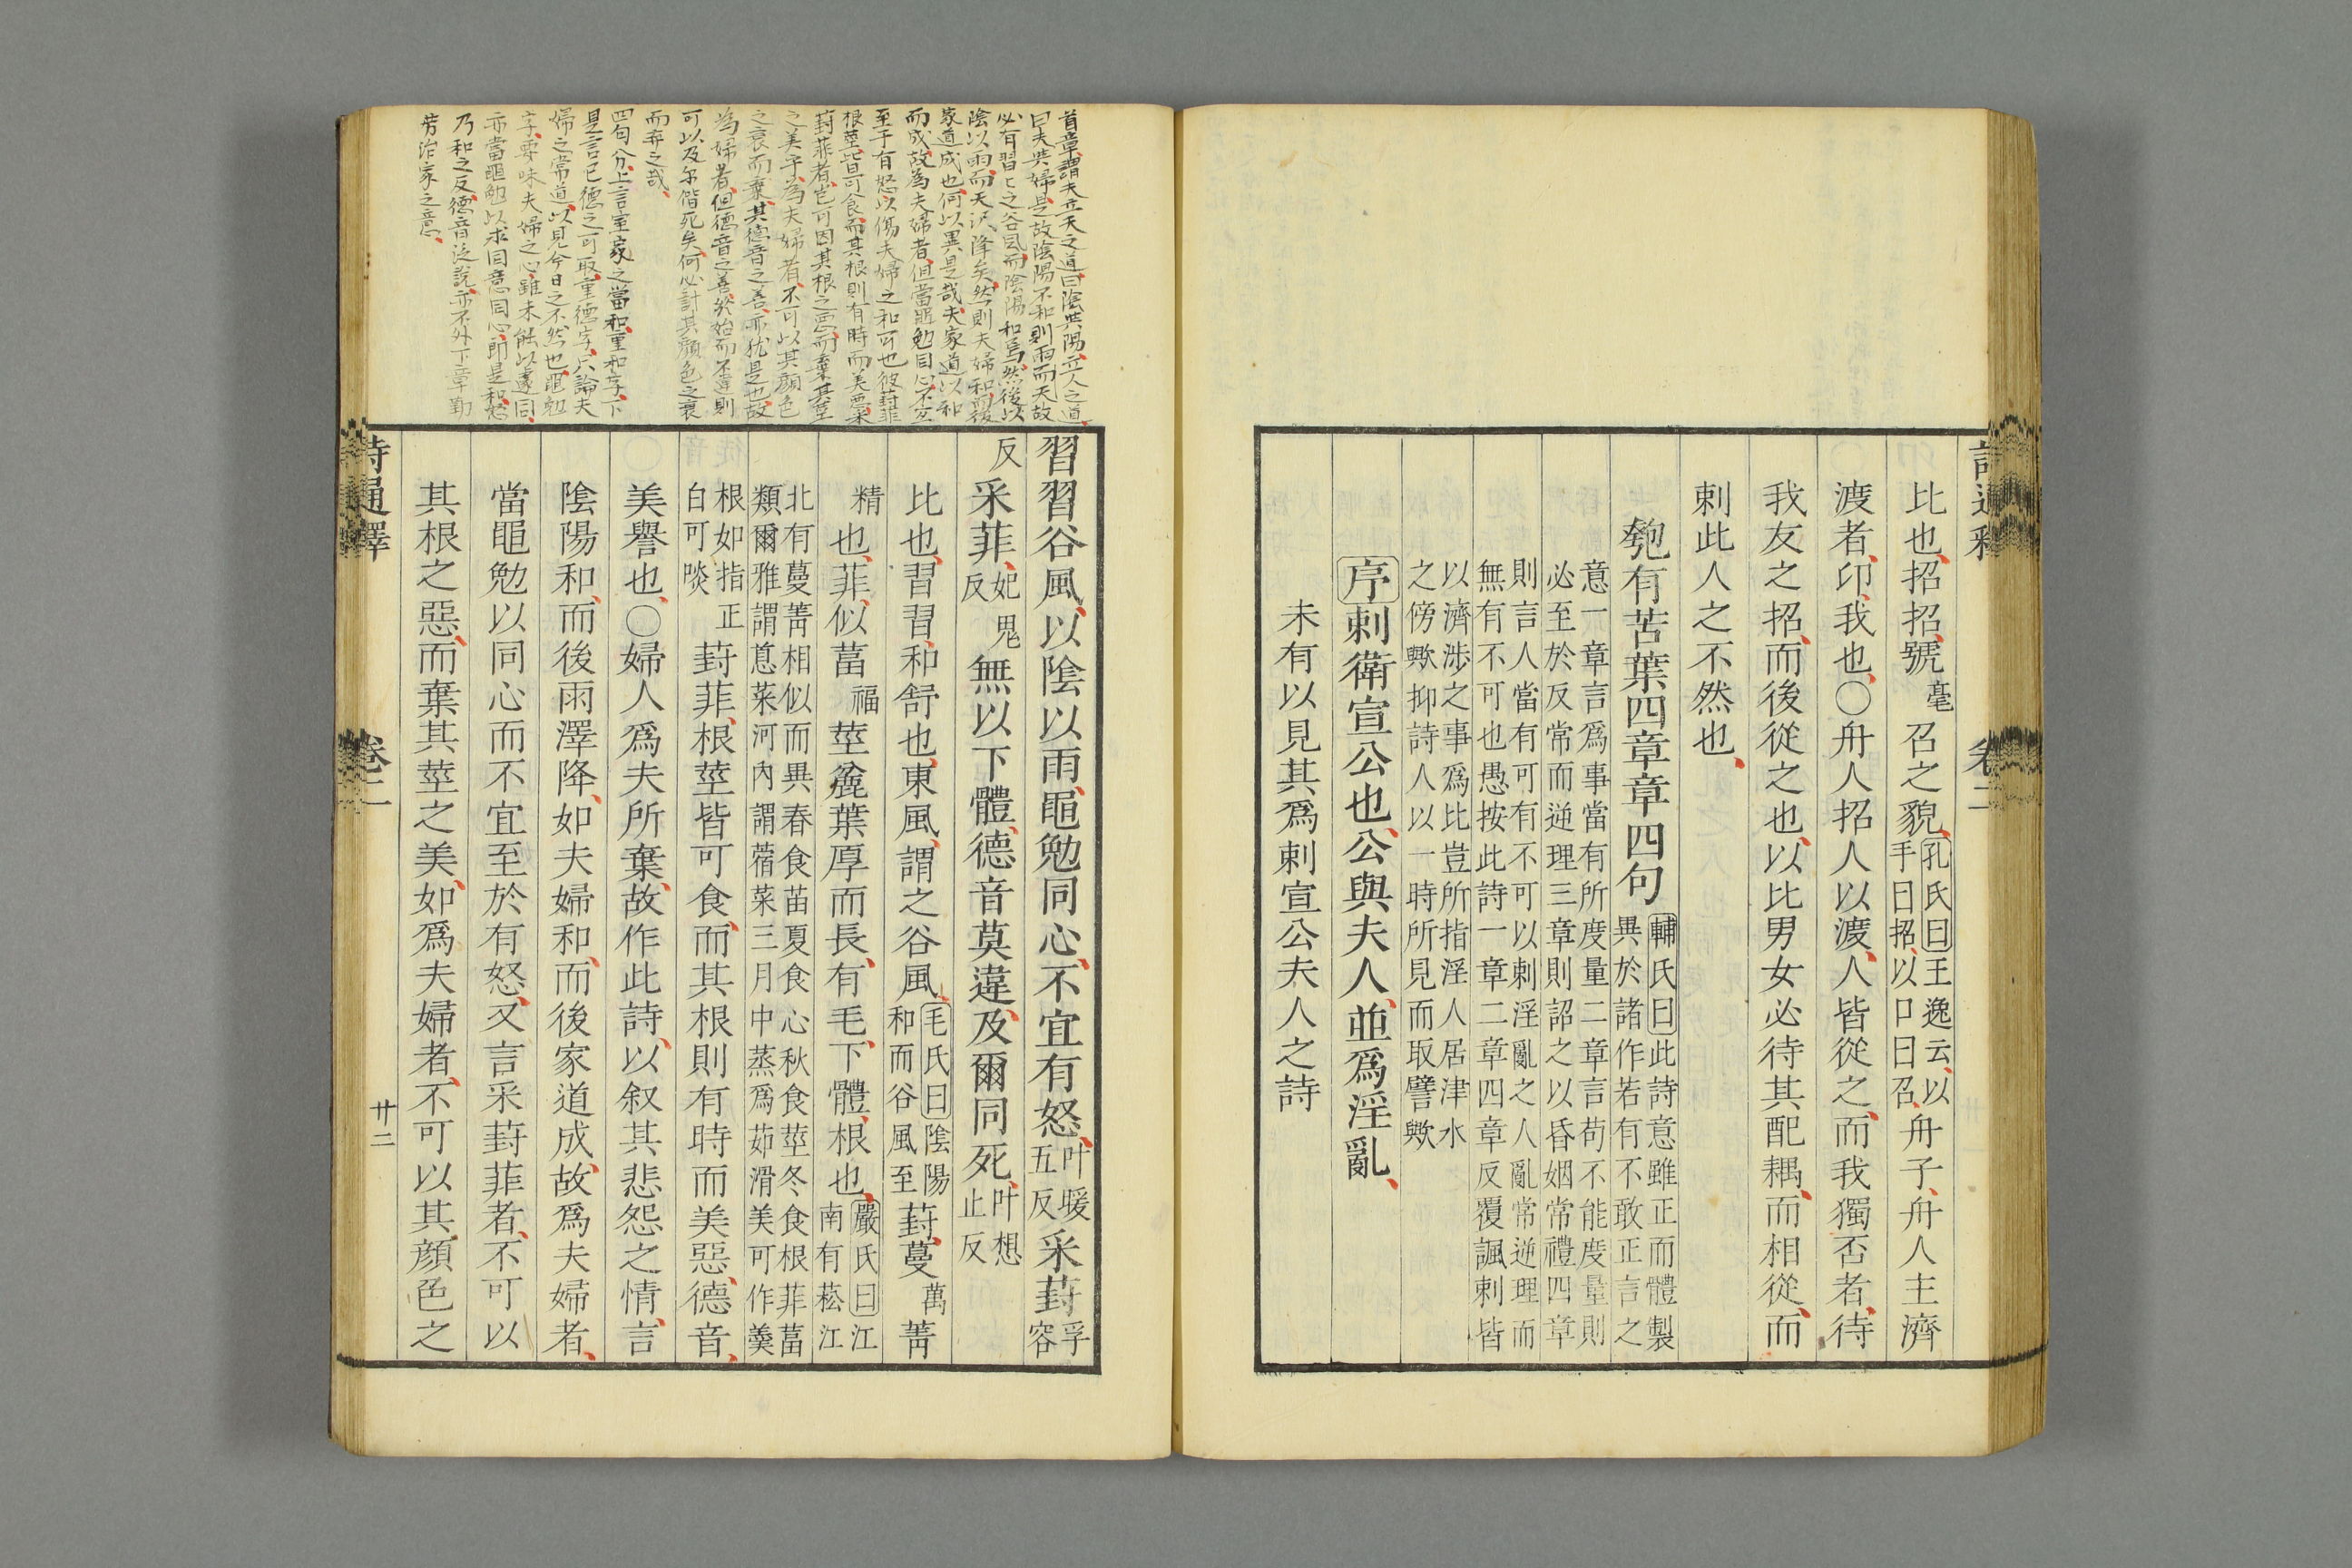 比也、招招、號毫召之貌、孔氏曰王逸云、以
手曰招、以口曰召、舟子、舟人主濟
渡者、卬、我也、○舟人招人以渡、人皆從之、而我獨否者、待
我友之招、而後從之也、以比男女必待其配耦、而相從、而
刺此人之不然也、
匏有苦葉四章章四句輔氏曰此詩意雖正而體製
異於諸作若有不敢正言之
意一章言爲事當有所度量二章言苟不能度量則
必至於反常而逆理三章則詔之以昏姻常禮四章
則言人當有可有不可以刺淫亂之人亂常逆理而
無有不可也愚按此詩一章二章四章反覆諷刺皆
以濟涉之事爲比豈所指淫人居津水
之傍歟抑詩人以一時所見而取譬歟
序刺衛宣公也、公與夫人、並爲淫亂、
未有以見其爲刺宣公夫人之詩
詩通釋 卷二
首章謂夫立天之道、曰陰與陽、立人之道、
曰夫與婦、是故陰陽不和、則雨而天故
必有習〻之谷風、而陰陽和焉、然後以
陰以雨、而天沢降矣、然則夫婦和而後
家道成也、何以異是哉、夫家道以和
而成、故為夫婦者、但當黽勉同心、不宜
至于有怒、以傷夫婦之和可也、彼葑菲
根莖皆可食、而其根則有時而美惡、采
葑菲者、豈可因其根之惡、而棄其莖
之美乎、為夫婦者、不可以其顏色
之衰而棄其德音之善、亦猶是也、故
為婦者、但德音之善、於始而不違、則
可以及尔偕死矣、何必計其顏色之衰
而弃之哉、
四句分、上言室家之當和、重和字、下
是言已德之可取、重德字、只論夫
婦之常道、以見今日之不然也、黽勉
字、要味夫婦之心、雖未能以遽同、
亦當黽勉以求同意、同心即是和、怒
乃和之反、德音泛說、亦不外下章勤
勞治家之意、
習習谷風、以陰以雨、黽勉同心、不宜有怒、叶暖
五反采葑孚容
反采菲、妃鬼
反無以下體、德音莫違、及爾同死、叶想
止反
比也、習習、和舒也、東風、謂之谷風、毛氏曰陰陽
和而谷風至葑、蔓萬菁
精也、菲、似葍福莖麄葉厚而長、有毛、下體、根也、嚴氏曰江
南有菘江
北有蔓菁相似而異春食苗夏食心秋食莖冬食根菲葍
類爾雅謂蒠菜河內謂蓿菜三月中蒸爲茹滑美可作羹
根如指正
白可啖葑菲、根莖皆可食、而其根則有時而美惡、德音、
美譽也、○婦人爲夫所棄、故作此詩、以叙其悲怨之情、言
陰陽和、而後雨澤降、如夫婦和、而後家道成、故爲夫婦者、
當黽勉以同心而不宜至於有怒、又言采葑菲者、不可以
其根之惡、而棄其莖之美、如爲夫婦者、不可以其顏色之
詩通釋 卷二 廿二